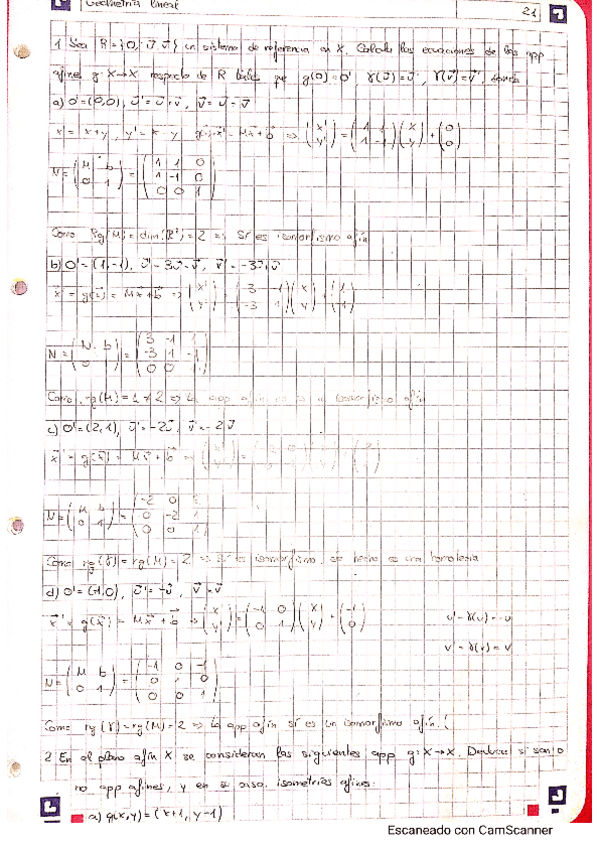 Geometría lineal 21
1 Sea R={0, u, v} un sistema de referencia en X. Calcula las ecuaciones de las app
afines g: X→X respecto de R tales que g(0)=0', γ(u)=u', γ(v)=v', donde
a) 0'=(0,0), u'=u+v, v'=u-v
x'=x+y, y'=x-y x'=Mx+b ⇒ (x' y') = (1 1 1 -1)(x y)+(0 0)
N=(M b 0 1)=(1 1 0 1 -1 0 0 0 1)
Como Rg(M)=dim(R²)=2 ⇒ Sí es isomorfismo afín
b) 0'=(1,-1), u'=3u-v, v'=-3u+v
x'=g(x)=Mx+b ⇒ (x' y') = (3 -1 -3 1)(x y)+(1 -1)
N=(M b 0 )=(3 -1 1 -3 1 -1 0 0 1)
Como rg(M)=1≠2 ⇒ La app afín no es un isomorfismo afín
c) 0'=(2,1), u'=-2u, v'=-2v
x'=g(x)=Mx+b ⇒
N=(M b 0 1)=(-2 0 2 0 -2 1 0 0 1)
Como rg(γ)=rg(M)=2 ⇒ Sí es isomorfismo, de hecho es una homotecia
d) 0'=(-1,0), u'=-u, v'=v
x'=g(x)=Mx+b ⇒ (x' y')=(-1 0 0 1)(x y)+(-1 0) u'=γ(u)=-u
v'=γ(v)=v
N=(M b 0 1)=(-1 0 -1 0 1 0 0 0 1)
Como rg(γ)=rg(M)=2 ⇒ La app afín sí es un isomorfismo afín.
2 En el plano afín X se consideran las siguientes app g: X→X. Deducir si son o
no app afines, y en su caso, isometrías afines:
a) g(x,y)=(x+1, y-1)
Escaneado con CamScanner